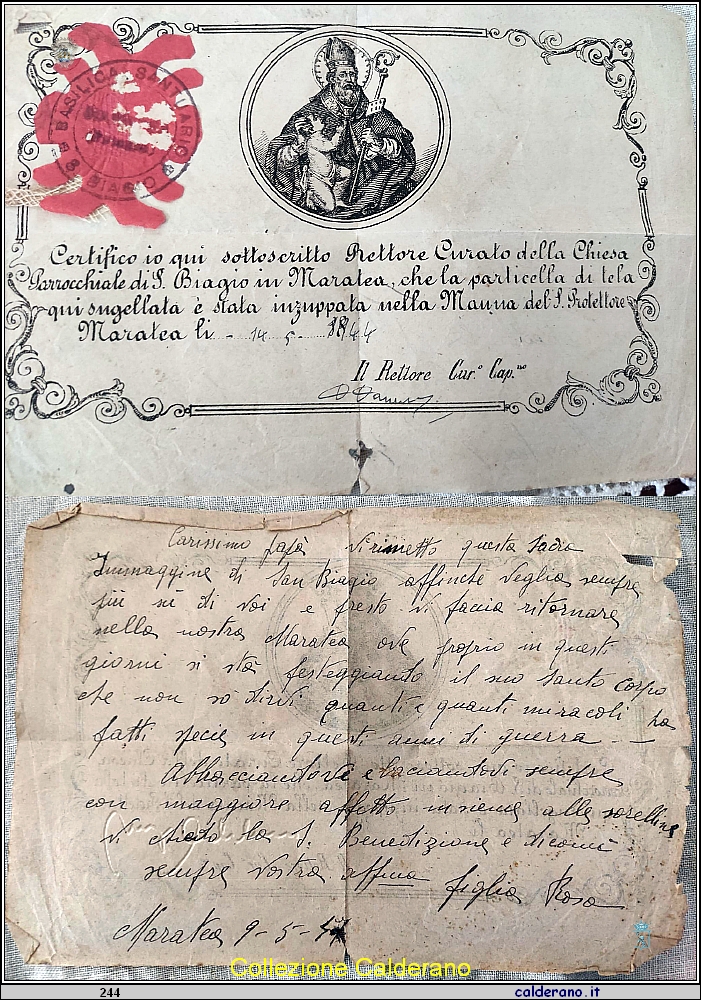 BASILICA SANTUARIO
S. BIAGIO
Certifico io qui sottoscritto Rettore Curato della Chiesa
Parrocchiale di S. Biagio in Maratea, che la particella di tela
qui sugellata è stata inzuppata nella Manna del S. Protettore
Maratea lì 14 - 5 - 1944
Il Rettore Cur.º Cap.no
Carissimo papà vi rimetto questa Sacra
Immaggine di San Biagio affinche veglia sempre
più su di voi e presto vi faccia ritornare
nella nostra Maratea ove proprio in questi
giorni si stà festeggiando il suo Santo corpo
che non so dirvi quanti e quanti miracoli ha
fatti specie in questi anni di guerra —
Abbracciandovi e baciandovi sempre
con maggiore affetto insieme alle sorelline
vi chiedo la S. Benedizione e dicomi
sempre vostra aff.ma figlia Rosa
Maratea 9-5-
Collezione Calderano
244
calderano.it